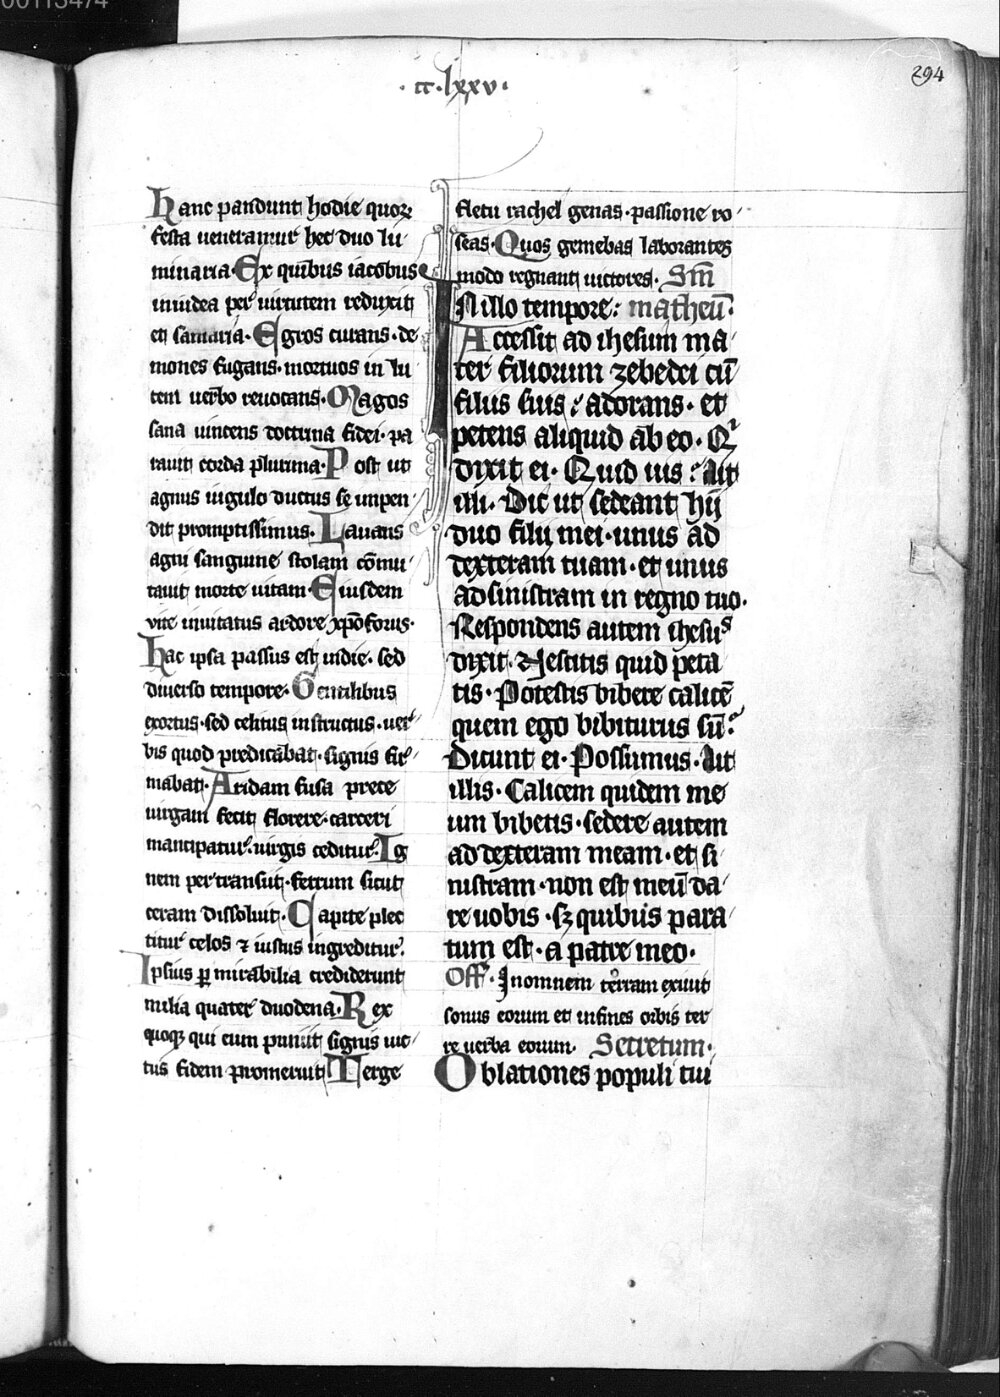 00113474
294
·cc·lxxv·
Hanc pandunt hodie quoꝝ
festa ueneramur hec duo lu
minaria·Ex quibus iacobus
iniudea per uirtutem reduxit
et samaria·Egros curans·de
mones fugans·mortuos in lu
cem uerbo reuocans·Magos
sana uincens doctrina fidei·pa
rauit corda plurima·Post ut
agnus iugulo ductus se inpen
dit promptissimus·Lauans
agni sanguine stolam cōmu
tauit morte uitam·Eiusdem
vite inuitatus ardore xpōforus·
Hac ipsa passus est indie·sed
diuerso tempore·Gentilibus
exortus·sed celitus instructus·uer
bis quod predicabat·signis fir
mabat·Aridam fusa prece
uirgam fecit florere·carceri
mancipatur·uirgis ceditur·Ig
nem pertransiit·ferrum sicut
ceram dissoluit·Capite plec
titur celos ⁊ iustus ingreditur·
Ipsius ꝑ mirabilia crediderunt
milia quater duodena·Rex
quoqꝫ qui eum puniit signis uic
tus fidem promeruit Terge
fletu rachel genas·passione ro
seas·Quos gemebas laborantes
modo regnant uictores· Scm̄
In illo tempore: matheū·
Accessit ad ihesum ma
ter filiorum zebedei cū
filiis suis: adorans·et
petens aliquid ab eo·Qⁱ
dixit ei·Quid uis: Ait
illi·Dic ut sedeant hij
duo filii mei·unus ad
dexteram tuam·et unus
ad sinistram in regno tuo·
Respondens autem ihesus
dixit·Nescitis quid peta
tis·Potestis bibere calicē
quem ego bibiturus sū:
Dicunt ei·Possumus·Ait
illis·Calicem quidem me
um bibetis·sedere autem
ad dexteram meam·et si
nistram·non est meū da
re uobis·sꝫ quibus para
tum est·a patre meo·
Off·In omnem terram exiuit
sonus eorum et infines orbis ter
re uerba eorum· Secretum·
Oblationes populi tui